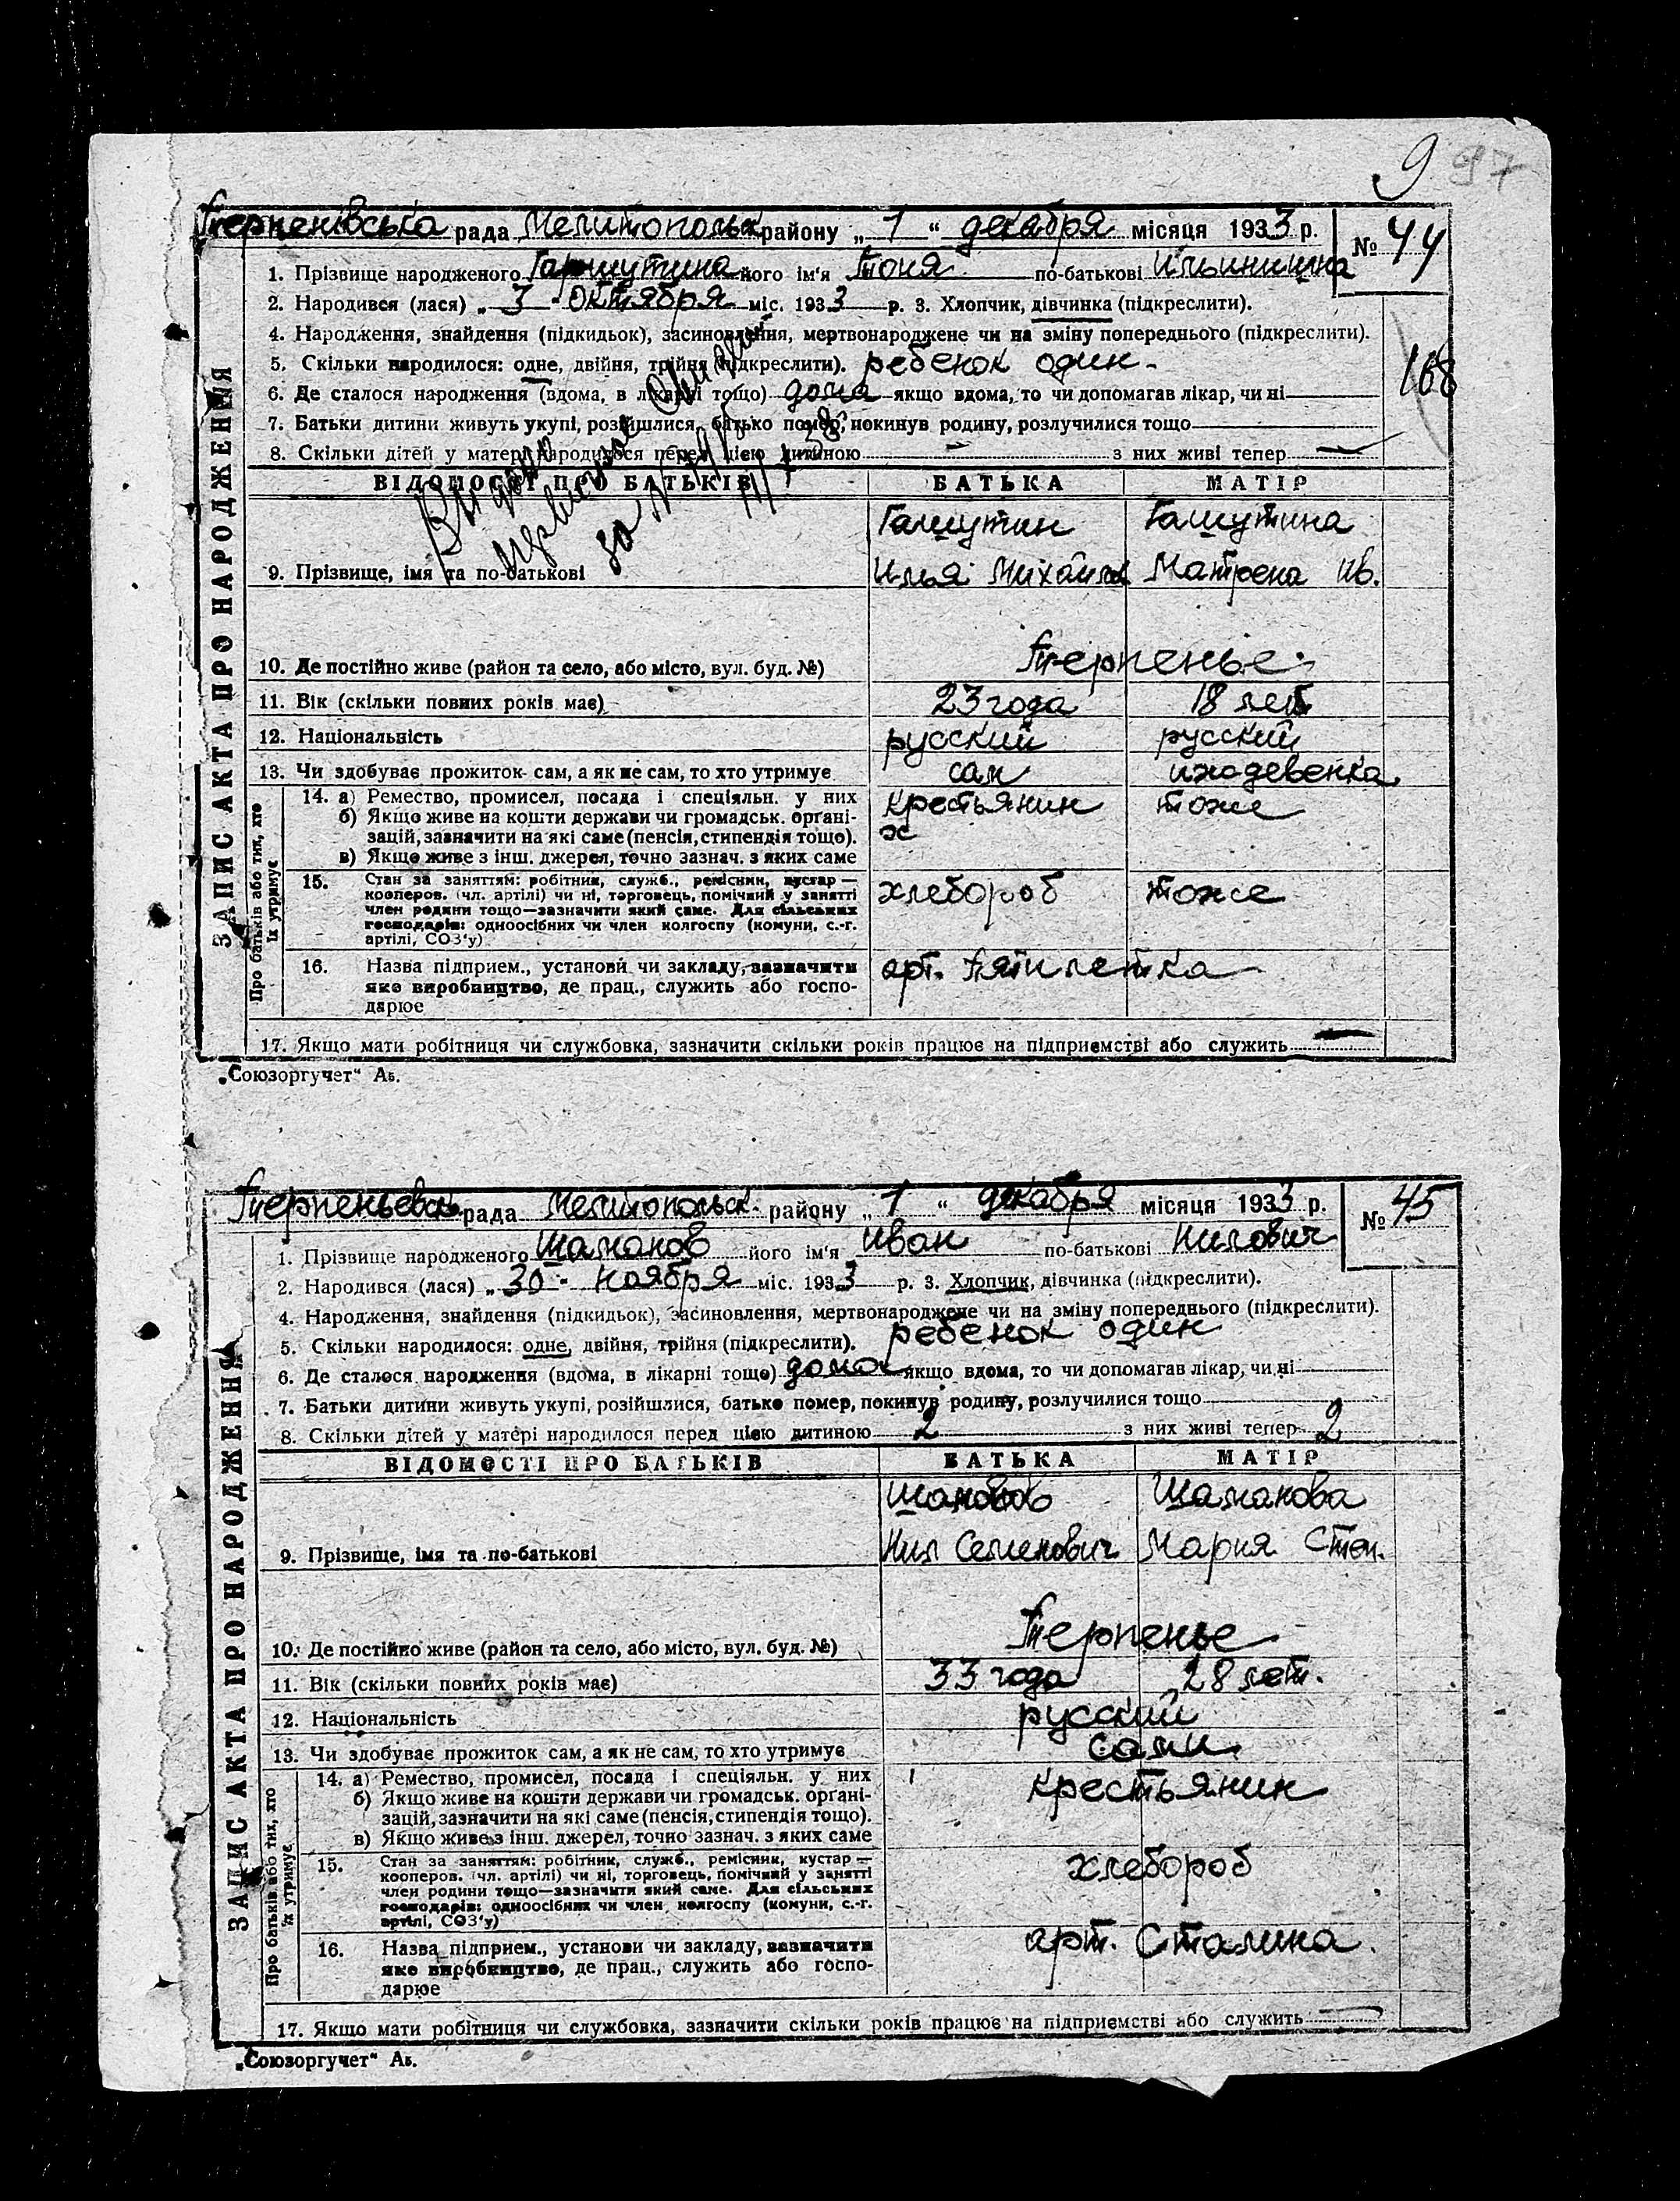 9 97
Терпенівська рада Мелитопольск району „ 1 “ декабря місяця 1933 р. № 44
1. Прізвище народженого Гаршутина його ім'я Тоня по-батькові Ильинишна
2. Народився (лася) „ 3 - октября міс. 1933 р. 3. Хлопчик, дівчинка (підкреслити).
4. Народження, знайдення (підкидьок), засиновлення, мертвонароджене чи на зміну попереднього (підкреслити).
5. Скільки народилося: одне, двійня, трійня (підкреслити). ребенок один -
168
6. Де сталося народження (вдома, в лікарні тощо) дома якщо вдома, то чи допомагав лікар, чи ні
7. Батьки дитини живуть укупі, розійшлися, батько помер, покинув родину, розлучилися тощо
8. Скільки дітей у матері народилося перед цією дитиною — з них живі тепер —
Видано
за №
ВІДОМОСТІ ПРО БАТЬКІВ БАТЬКА МАТІР
Гашутин Гашутина
9. Прізвище, імя та по-батькові Илья Михайлов Матрена Ив.
10. Де постійно живе (район та село, або місто, вул. буд. №) Терпенье.
11. Вік (скільки повних років має) 23 года 18 лет
12. Національність русский русский
13. Чи здобуває прожиток сам, а як не сам, то хто утримує сам иждевенка
ЗАПИС АКТА ПРО НАРОДЖЕННЯ
Про батьків або тих, хто їх утримує
14. а) Ремество, промисел, посада і спеціяльн. у них крестьянин тоже
б) Якщо живе на кошти держави чи громадськ. органі-
зацій, зазначити на які саме (пенсія, стипендія тощо).
в) Якщо живе з інш. джерел, точно зазнач. з яких саме
15. Стан за заняттям: робітник, служб., ремісник, кустар — хлебороб тоже
кооперов. (чл. артілі) чи ні, торговець, помічний у занятті
член родини тощо—зазначити який саме. Для сільських
господарів: одноосібних чи член колгоспу (комуни, с.-г.
артілі, СОЗ'у)
16. Назва підприєм., установи чи закладу, зазначити арт. Пятилетка
яке виробництво, де прац., служить або госпо-
дарює
17. Якщо мати робітниця чи службовка, зазначити скільки років працює на підприємстві або служить —
„Союзоргучет“ Аб.
Терпеньевск рада Мелитопольск. району „ 1 “ декабря місяця 1933 р. № 45
1. Прізвище народженого Шаманов його ім'я Иван по-батькові Нилович
2. Народився (лася) „ 30 - ноября міс. 1933 р. 3. Хлопчик, дівчинка (підкреслити).
4. Народження, знайдення (підкидьок), засиновлення, мертвонароджене чи на зміну попереднього (підкреслити).
5. Скільки народилося: одне, двійня, трійня (підкреслити). ребенок один
6. Де сталося народження (вдома, в лікарні тощо) дома якщо вдома, то чи допомагав лікар, чи ні
7. Батьки дитини живуть укупі, розійшлися, батько помер, покинув родину, розлучилися тощо
8. Скільки дітей у матері народилося перед цією дитиною 2 з них живі тепер 2
ВІДОМОСТІ ПРО БАТЬКІВ БАТЬКА МАТІР
Шаманова
9. Прізвище, імя та по-батькові Нил Семенович Мария Степ.
10. Де постійно живе (район та село, або місто, вул. буд. №) Терпенье
11. Вік (скільки повних років має) 33 года 28 лет.
12. Національність русский
13. Чи здобуває прожиток сам, а як не сам, то хто утримує сами
ЗАПИС АКТА ПРО НАРОДЖЕННЯ
Про батьків або тих, хто їх утримує
14. а) Ремество, промисел, посада і спеціяльн. у них крестьянин
б) Якщо живе на кошти держави чи громадськ. органі-
зацій, зазначити на які саме (пенсія, стипендія тощо).
в) Якщо живе з інш. джерел, точно зазнач. з яких саме
15. Стан за заняттям: робітник, служб., ремісник, кустар — хлебороб
кооперов. (чл. артілі) чи ні, торговець, помічний у занятті
член родини тощо—зазначити який саме. Для сільських
господарів: одноосібних чи член колгоспу (комуни, с.-г.
артілі, СОЗ'у)
16. Назва підприєм., установи чи закладу, зазначити арт. Сталина.
яке виробництво, де прац., служить або госпо-
дарює
17. Якщо мати робітниця чи службовка, зазначити скільки років працює на підприємстві або служить —
„Союзоргучет“ Аб.